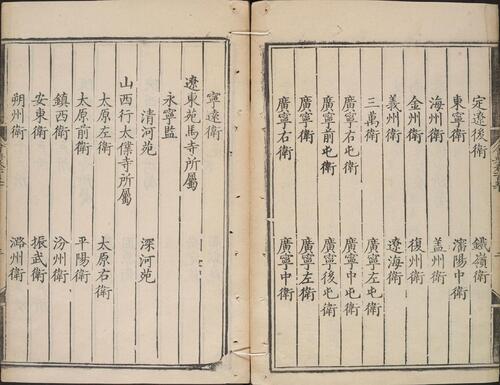 定遼後衛 鐵嶺衛
東寧衛 瀋陽中衛
海州衛 盖州衛
金州衛 復州衛
義州衛 遼海衛
三萬衛 廣寧左屯衛
廣寧右屯衛 廣寧中屯衛
廣寧前屯衛 廣寧後屯衛
廣寧衛 廣寧左衛
廣寧右衛 廣寧中衛
寧遠衛
遼東苑馬寺所屬
永寧監
清河苑 深河苑
山西行太僕寺所屬
太原左衛 太原右衛
太原前衛 平陽衛
鎮西衛 汾州衛
安東衛 振武衛
朔州衛 潞州衛